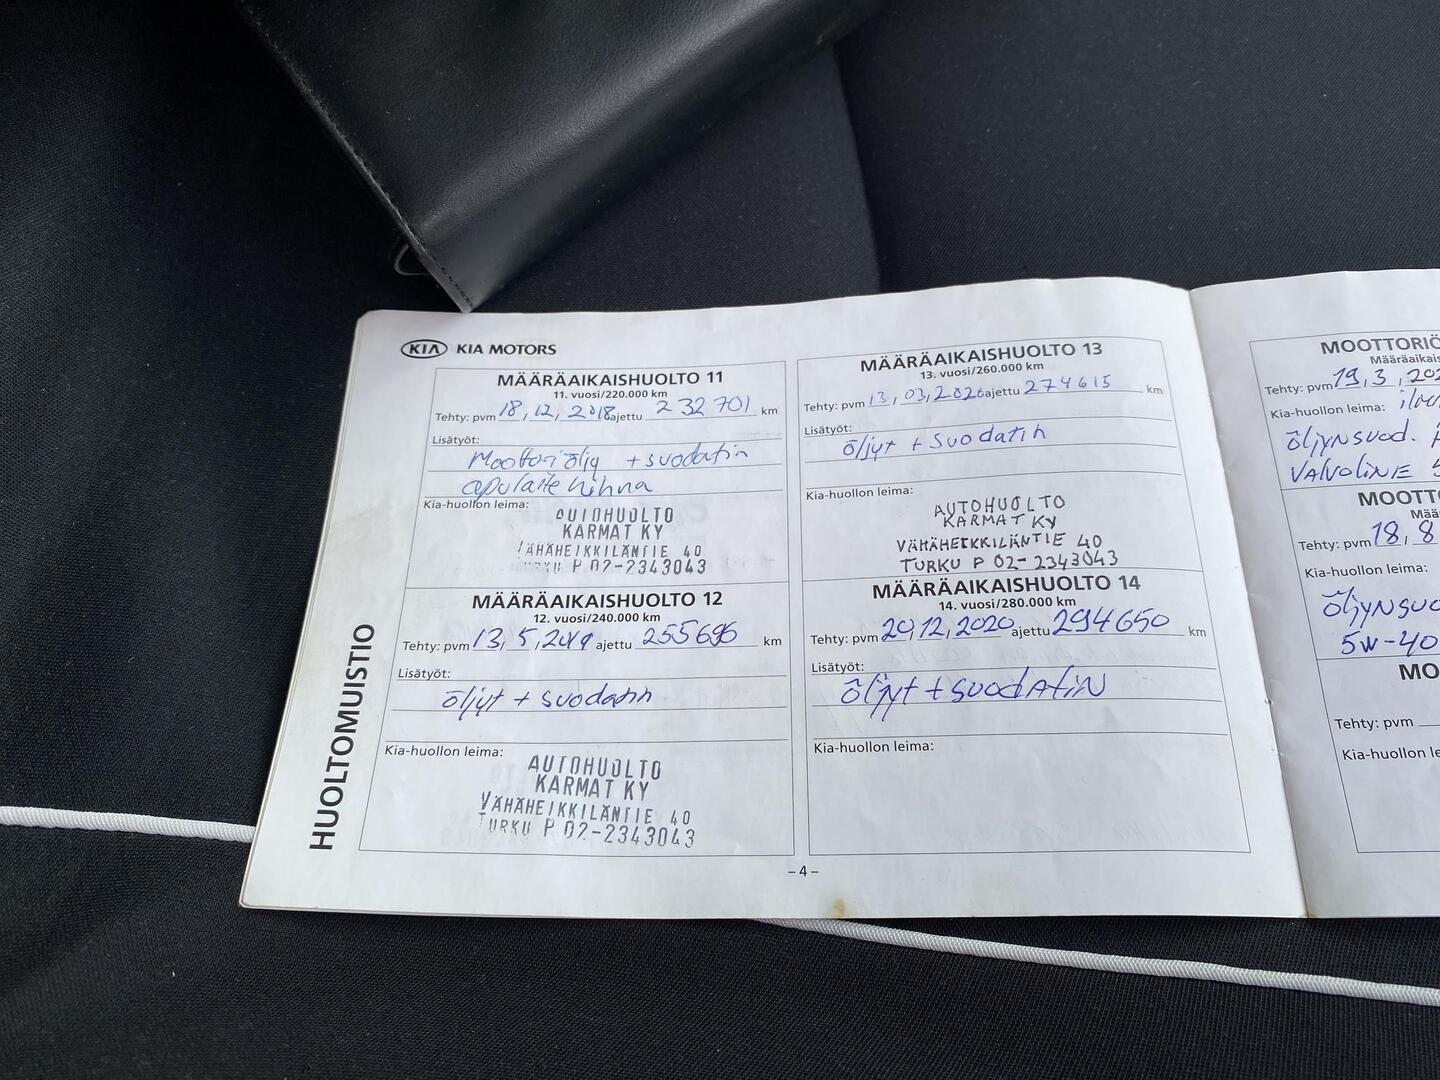 KIA KIA MOTORS
HUOLTOMUISTIO
MÄÄRÄAIKAISHUOLTO 11
11. vuosi/220.000 km
Tehty: pvm 18, 12, 2018 ajettu 232701 km
Lisätyöt:
Moottoriöljy + suodatin
apulaite hihna
Kia-huollon leima:
AUTOHUOLTO
KARMAT KY
VÄHÄHEIKKILÄNTIE 40
TURKU P 02-2343043
MÄÄRÄAIKAISHUOLTO 12
12. vuosi/240.000 km
Tehty: pvm 13, 5, 2019 ajettu 255696 km
Lisätyöt:
öljyt + suodatin
Kia-huollon leima:
AUTOHUOLTO
KARMAT KY
VÄHÄHEIKKILÄNTIE 40
TURKU P 02-2343043
MÄÄRÄAIKAISHUOLTO 13
13. vuosi/260.000 km
Tehty: pvm 13, 03, 2020 ajettu 274615 km
Lisätyöt:
öljyt + suodatin
Kia-huollon leima:
AUTOHUOLTO
KARMAT KY
VÄHÄHEIKKILÄNTIE 40
TURKU P 02-2343043
MÄÄRÄAIKAISHUOLTO 14
14. vuosi/280.000 km
Tehty: pvm 20, 12, 2020 ajettu 294650 km
Lisätyöt:
öljyt + suodatin
Kia-huollon leima:
– 4 –
MOOTTORIÖ
Määräaikais
Tehty: pvm 19, 3, 202
Kia-huollon leima:
öljynsuod.
VALVOLINE 5
MOOTT
Mää
Tehty: pvm 18, 8
Kia-huollon leima:
öljynsuo
5W-40
MO
Tehty: pvm
Kia-huollon le